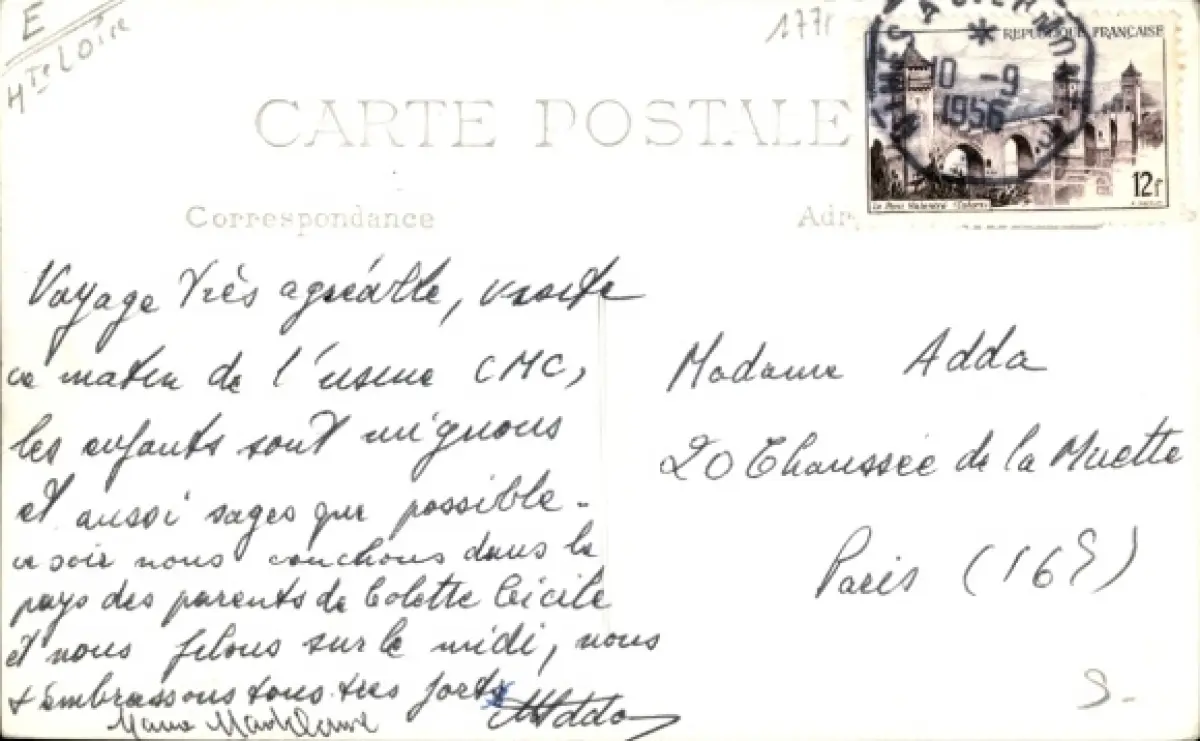 E
Hte LOIRE
1771
REPUBLIQUE FRANÇAISE
10 -9
1956
12F
Le Pont Valentré (Cahors)
CARTE POSTALE
Correspondance
Adr
Voyage Très agréable, visite
ce matin de l'usine CMC,
les enfants sont mignons
et aussi sages que possible -
ce soir nous couchons dans le
pays des parents de Colette Cécile
et nous filons sur le midi, nous
t'embrassons tous tres forts
MAdda
Madame Adda
20 Chaussée de la Muette
Paris (16e)